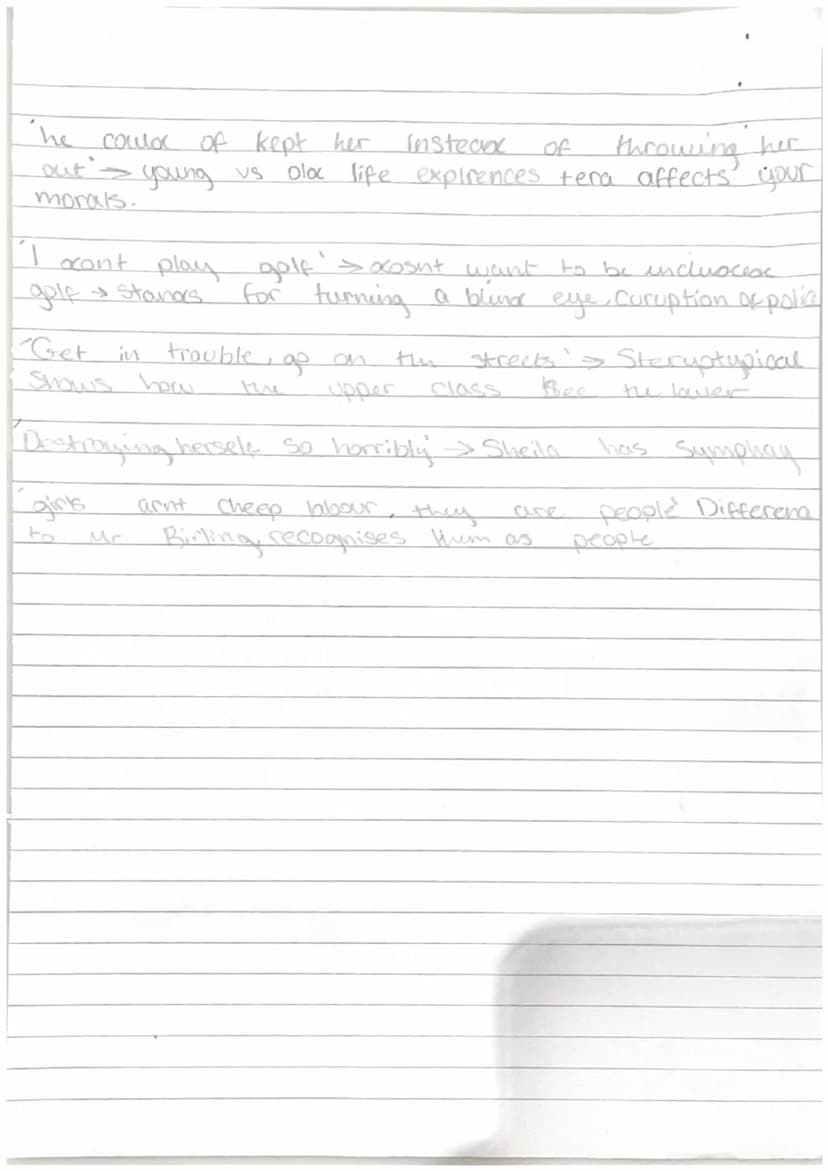 'he could of kept her instead of throwing her
out' → young vs old life expirences tend affects your
morals.
'I dont play golf' → dosnt want to be included
golf → stands for turning a blind eye, curuption of police
'Get in trouble, go on the streets' → Steryptypical
shows how the upper class see the lower
'Destroying herself so horribly' → Sheila has symphay
'girls arnt cheep labour, they are people' Differend
to Mr Birling, recognises them as people